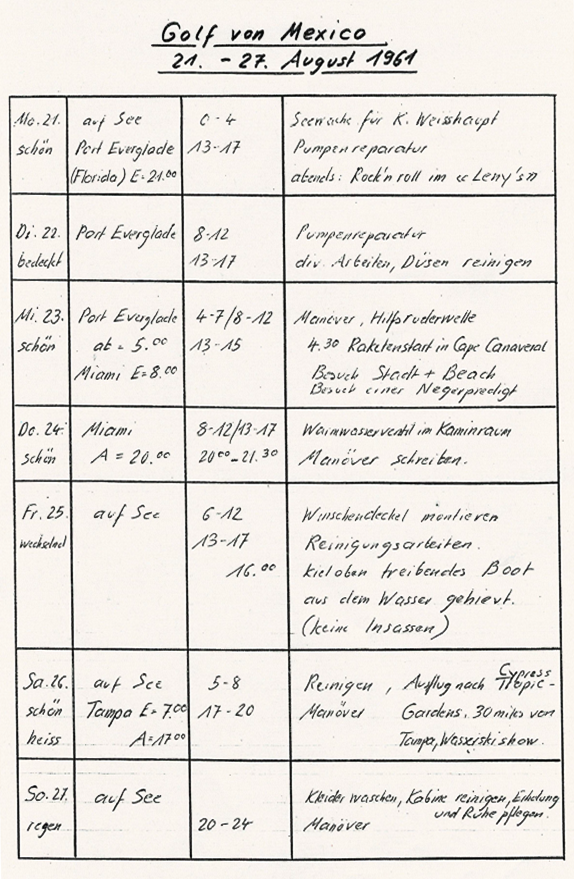 Golf von Mexico
21. - 27. August 1961
Mo. 21. auf See 0 - 4 Seewache für K. Weisshaupt
schön Port Everglade 13-17 Pumpenreparatur
(Florida) E=21.00 abends: Rock'n roll im « Leny's »
Di. 22. Port Everglade 8-12 Pumpenreparatur
bedeckt 13-17 div. Arbeiten, Düsen reinigen
Mi. 23. Port Everglade 4-7/8-12 Manöver, Hilfsruderwelle
schön ab = 5.00 13-15 4.30 Raketenstart in Cape Canaveral
Miami E=8.00 Besuch Stadt + Beach
Besuch einer Negerpredigt
Do. 24. Miami 8-12/13-17 Warmwasserventil im Kaminraum
schön A = 20.00 2000-21.30 Manöver schreiben.
Fr. 25. auf See 6-12 Winschendeckel montieren
wechselnd 13-17 Reinigungsarbeiten.
16.00 kieloben treibendes Boot
aus dem Wasser gehievt.
(keine Insassen)
Sa. 26. auf See 5-8 Reinigen, Ausflug nach Cypress
schön Tampa E=7.00 17-20 Manöver Gardens, 30 miles von
heiss A=17.00 Tampa, Wasserskishow.
So. 27. auf See Kleider waschen, Kabine reinigen, Erholung
und Ruhe pflegen.
regen 20-24 Manöver